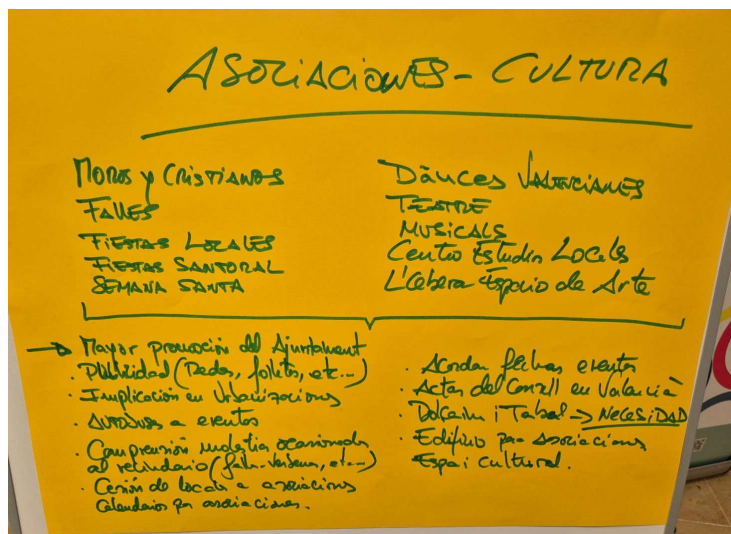 ASOCIACIONES - CULTURA
MOROS y CRISTIANOS
FALLES
FIESTAS LOCALES
FIESTAS SANTORAL
SEMANA SANTA
Dànces VALENCIANES
TEATRE
MUSICALS
Centro Estudis Locals
L'Cebera Espacio de Arte
→ Mayor promoción del Ajuntament
· Publicidad (Redes, folletos, etc...)
· Implicación en Urbanizaciones
· Autobus a eventos
· Comprensión molestia ocasionada
al vecindario (falla-verbena, etc...)
· Cesión de locals a asociacions
Calendarios por asociaciones.
· Acordar fechas eventos
· Actas del Consell en Valencià
· Dolçaina i Tabal → NECESIDAD
· Edificio para asociacions
Espai cultural.